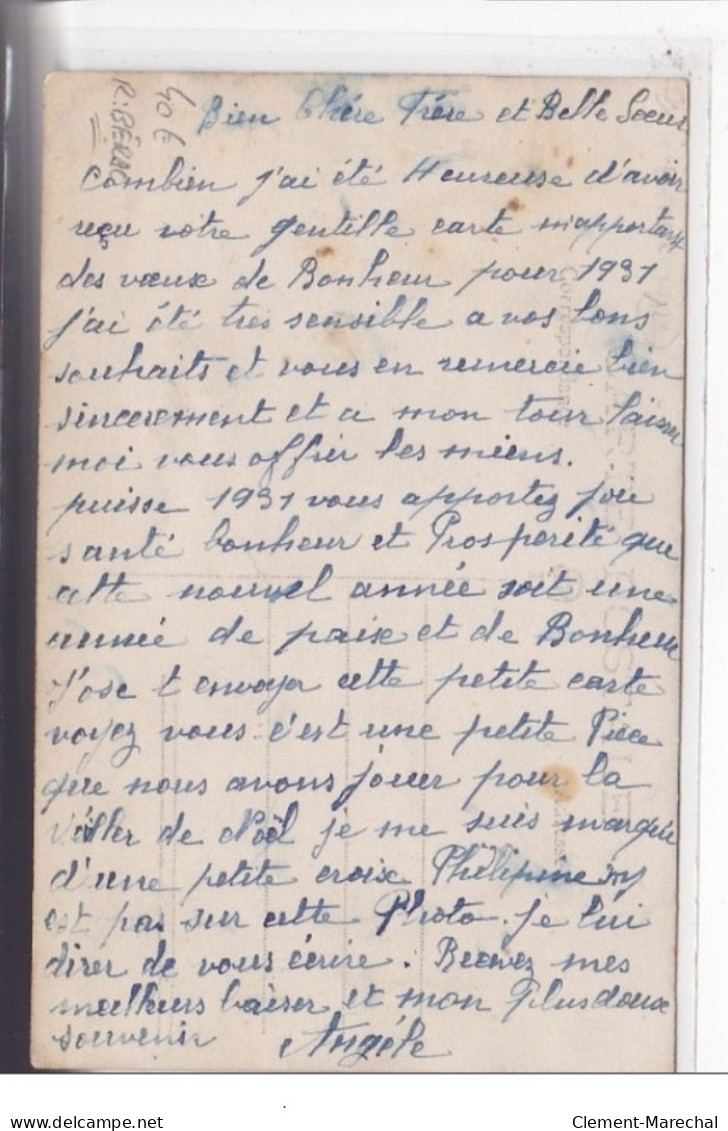 40€
R:BÉRAC
Bien Chére Frére et Belle Soeur
Combien j'ai été Heureuse d'avoir
reçu votre gentille carte m'apportant
des voeux de Bonheur pour 1931
j'ai été très sensible a vos bons
souhaits et vous en remercie bien
sincerement et a mon tour laisser
moi vous offrir les miens.
puisse 1931 vous apportez joie
santé bonheur et Prosperité que
cette nouvel année soit une
année de paix et de Bonheur
J'ose t envoyer cette petite carte
voyez vous c'est une petite Piece
que nous avons jouer pour la
Veiller de Noël je me suis marquée
d'une petite croix Philipine ny
est pas sur cette Photo. je lui
direr de vous écrire. Recevez mes
meilleurs baiser et mon Plus doux
souvenir Angéle
Clement-Marechal